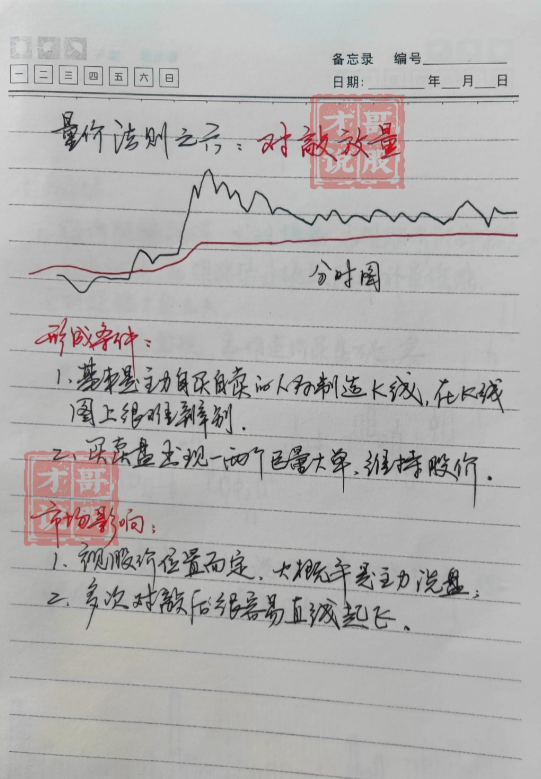 备忘录 编号
一 二 三 四 五 六 日
日期: 年 月 日
量价法则之六：对敲放量
才哥说股
分时图
形成条件：
1、基本是主力自买自卖的人为制造K线，在K线
图上很难辨别．
2、买卖盘出现一两个巨量大单，维持股价．
才哥说股
市场影响：
1、视股价位置而定，大概率是主力洗盘；
2、多次对敲后很容易直线起飞．